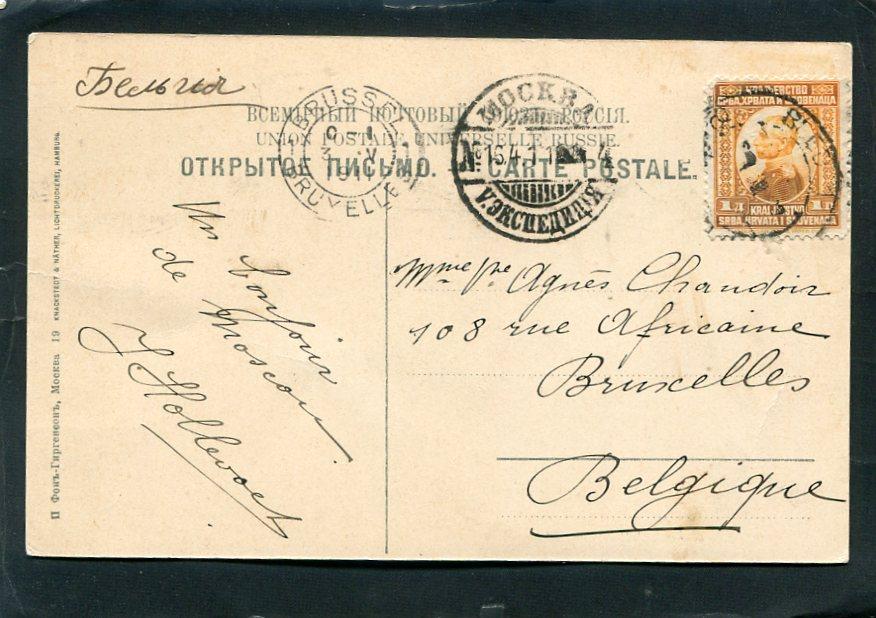 Бельгия
ВСЕМІРНЫЙ ПОЧТОВЫЙ СОЮЗЪ. РОССІЯ.
UNION POSTALE UNIVERSELLE RUSSIE.
ОТКРЫТОЕ ПИСЬМО. — CARTE POSTALE.
BRUSSEL
BRUXELLES
МОСКВА
V. ЭКСПЕДИЦІЯ
КРАЉЕВСТВО
СРБА, ХРВАТА И СЛОВЕНАЦА
1 Д KRALJEVSTVO 1 D
SRBA, HRVATA I SLOVENACA
Un bonjour
de Moscou.
J Hollevoet
Mme Agnès Chandoir
108 rue Africaine
Bruxelles
Belgique
П Фонъ-Гиргенсонъ, Москва 19 KNACKSTEDT & NÄTHER, LICHTDRUCKEREI, HAMBURG